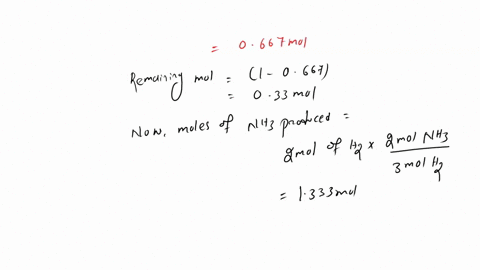 = 0.667 mol
Remaining mol = (1 - 0.667)
= 0.33 mol
Now, moles of NH3 produced =
2 mol of H2 × 2 mol NH3 / 3 mol H2
= 1.333 mol